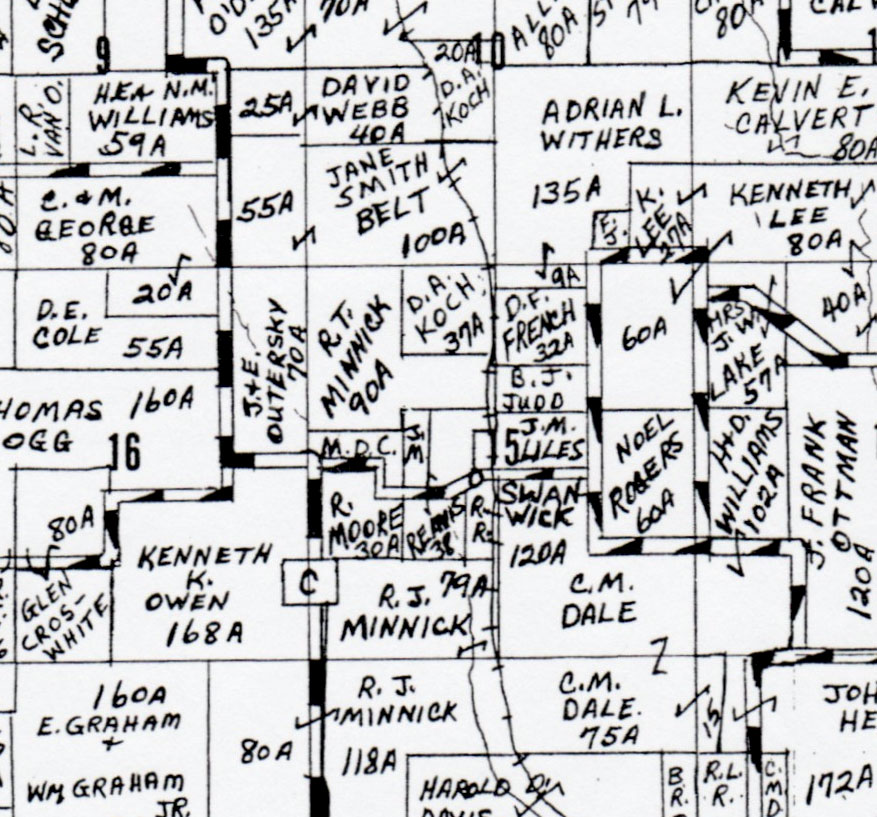 9
135A
70A
20A
10
80A
80A
H.E.& N.M.
WILLIAMS
59A
L. R.
VAN O.
25A
DAVID
WEBB
40A
D.A.
KOCH
ADRIAN L.
WITHERS
135A
KEVIN E.
CALVERT
80A
C. & M.
GEORGE
80A
55A
JANE
SMITH
BELT
100A
E.
J.
K.
LEE
27A
KENNETH
LEE
80A
20A
D.E.
COLE
55A
J.&E.
OUTERSKY
70A
R.T.
MINNICK
90A
D.A.
KOCH
37A
9A
D.F.
FRENCH
32A
60A
MRS
J. W.
LAKE
57A
40A
HOMAS
OGG
160A
16
B. J.
JUDD
M.D.C.
J.M.
15
J.M.
LILES
NOEL
ROGERS
60A
H&D.
WILLIAMS
102A
J. FRANK
OTTMAN
120A
80A
R.
MOORE
30A
REAVIS
38
R.
R.
SWAN
WICK
120A
GLEN
CROS-
WHITE
KENNETH
K.
OWEN
168A
C
R.J.
MINNICK
79A
C.M.
DALE
160A
E. GRAHAM
+
WM GRAHAM
JR.
80A
R. J.
MINNICK
118A
C.M.
DALE.
75A
15
JOH
HE
172A
HAROLD D.
DAVIS
B
R.
R.L.
R.
C.
M.
D